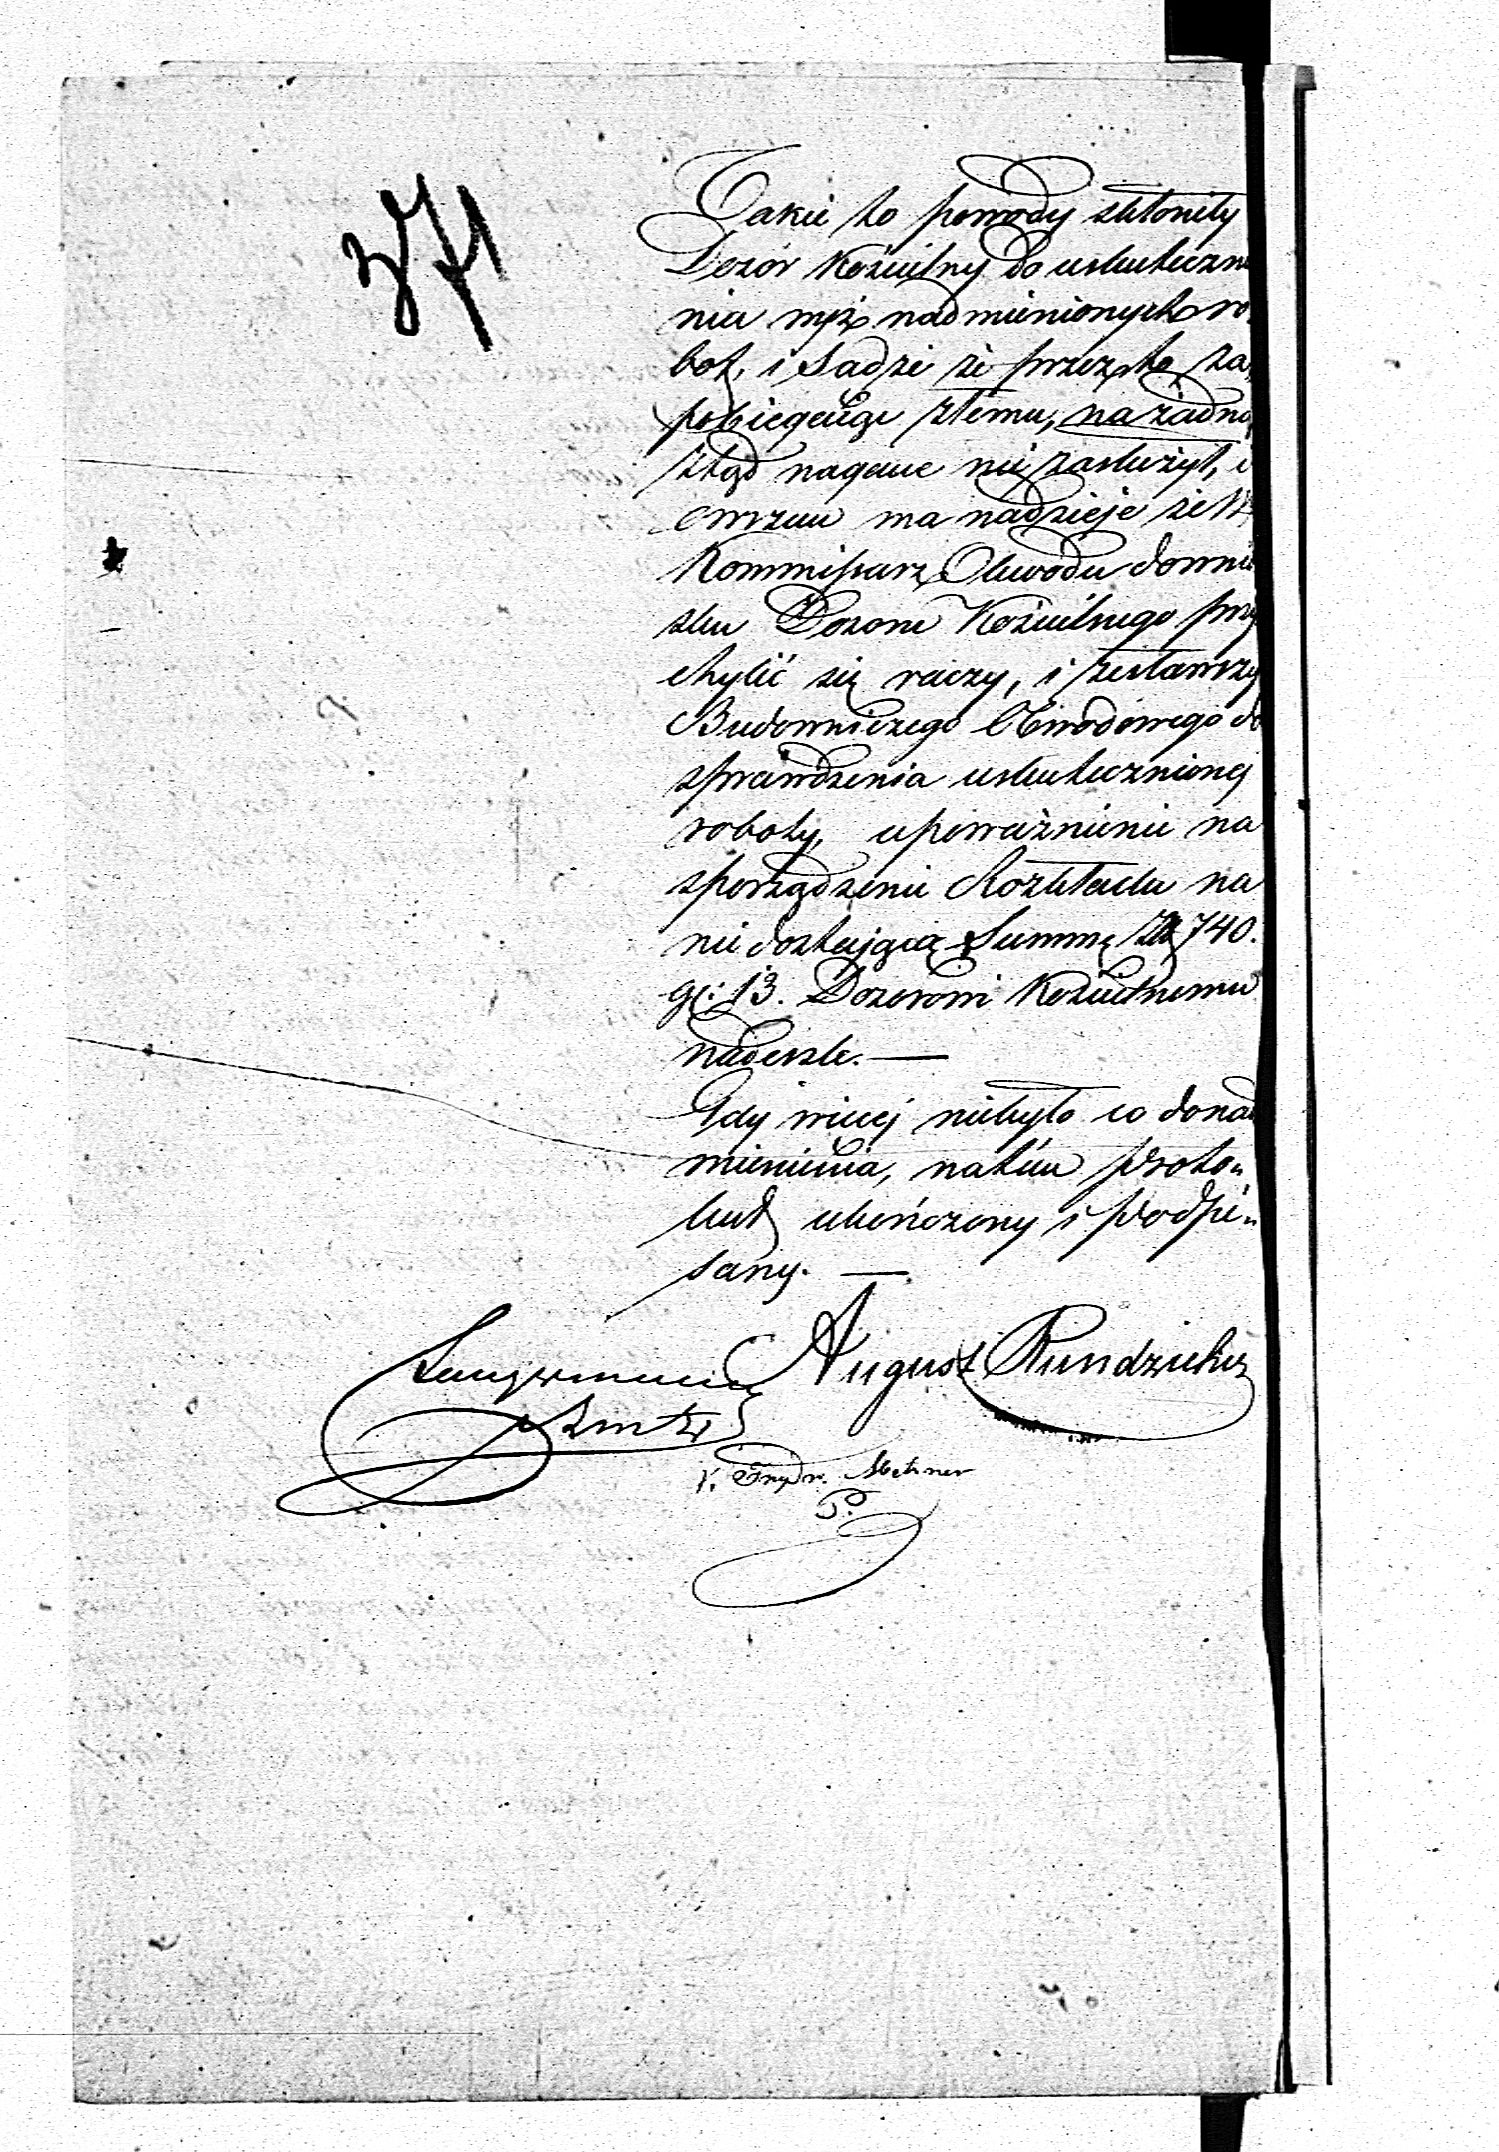 371
Takie to powody skłoniły
Dozór Kościelny do uskutecznie
nia wyż nadmienionych ro
bot, i sądzi że przez to, za
pobiegając złemu, na żadną
ztąd naganę nie zasłużył, i
owszem ma nadzieje że W.
Kommissarz Obwodu do wnio
sku Dozoru Kościelnego przy
chylić się raczy, i zesławszy
Budowniczego Obwodowego do
sprawdzenia uskutecznionej
roboty, upoważnienie na
sporządzenie Rozkładu na
nie dostającą Summę Złp 740.
gr: 13. Dozorowi Kościelnemu
nadeszle. —
Gdy więcej niebyło co do nad
mienienia, na tem proto„
kuł ukończony i podpi„
sany. —
August